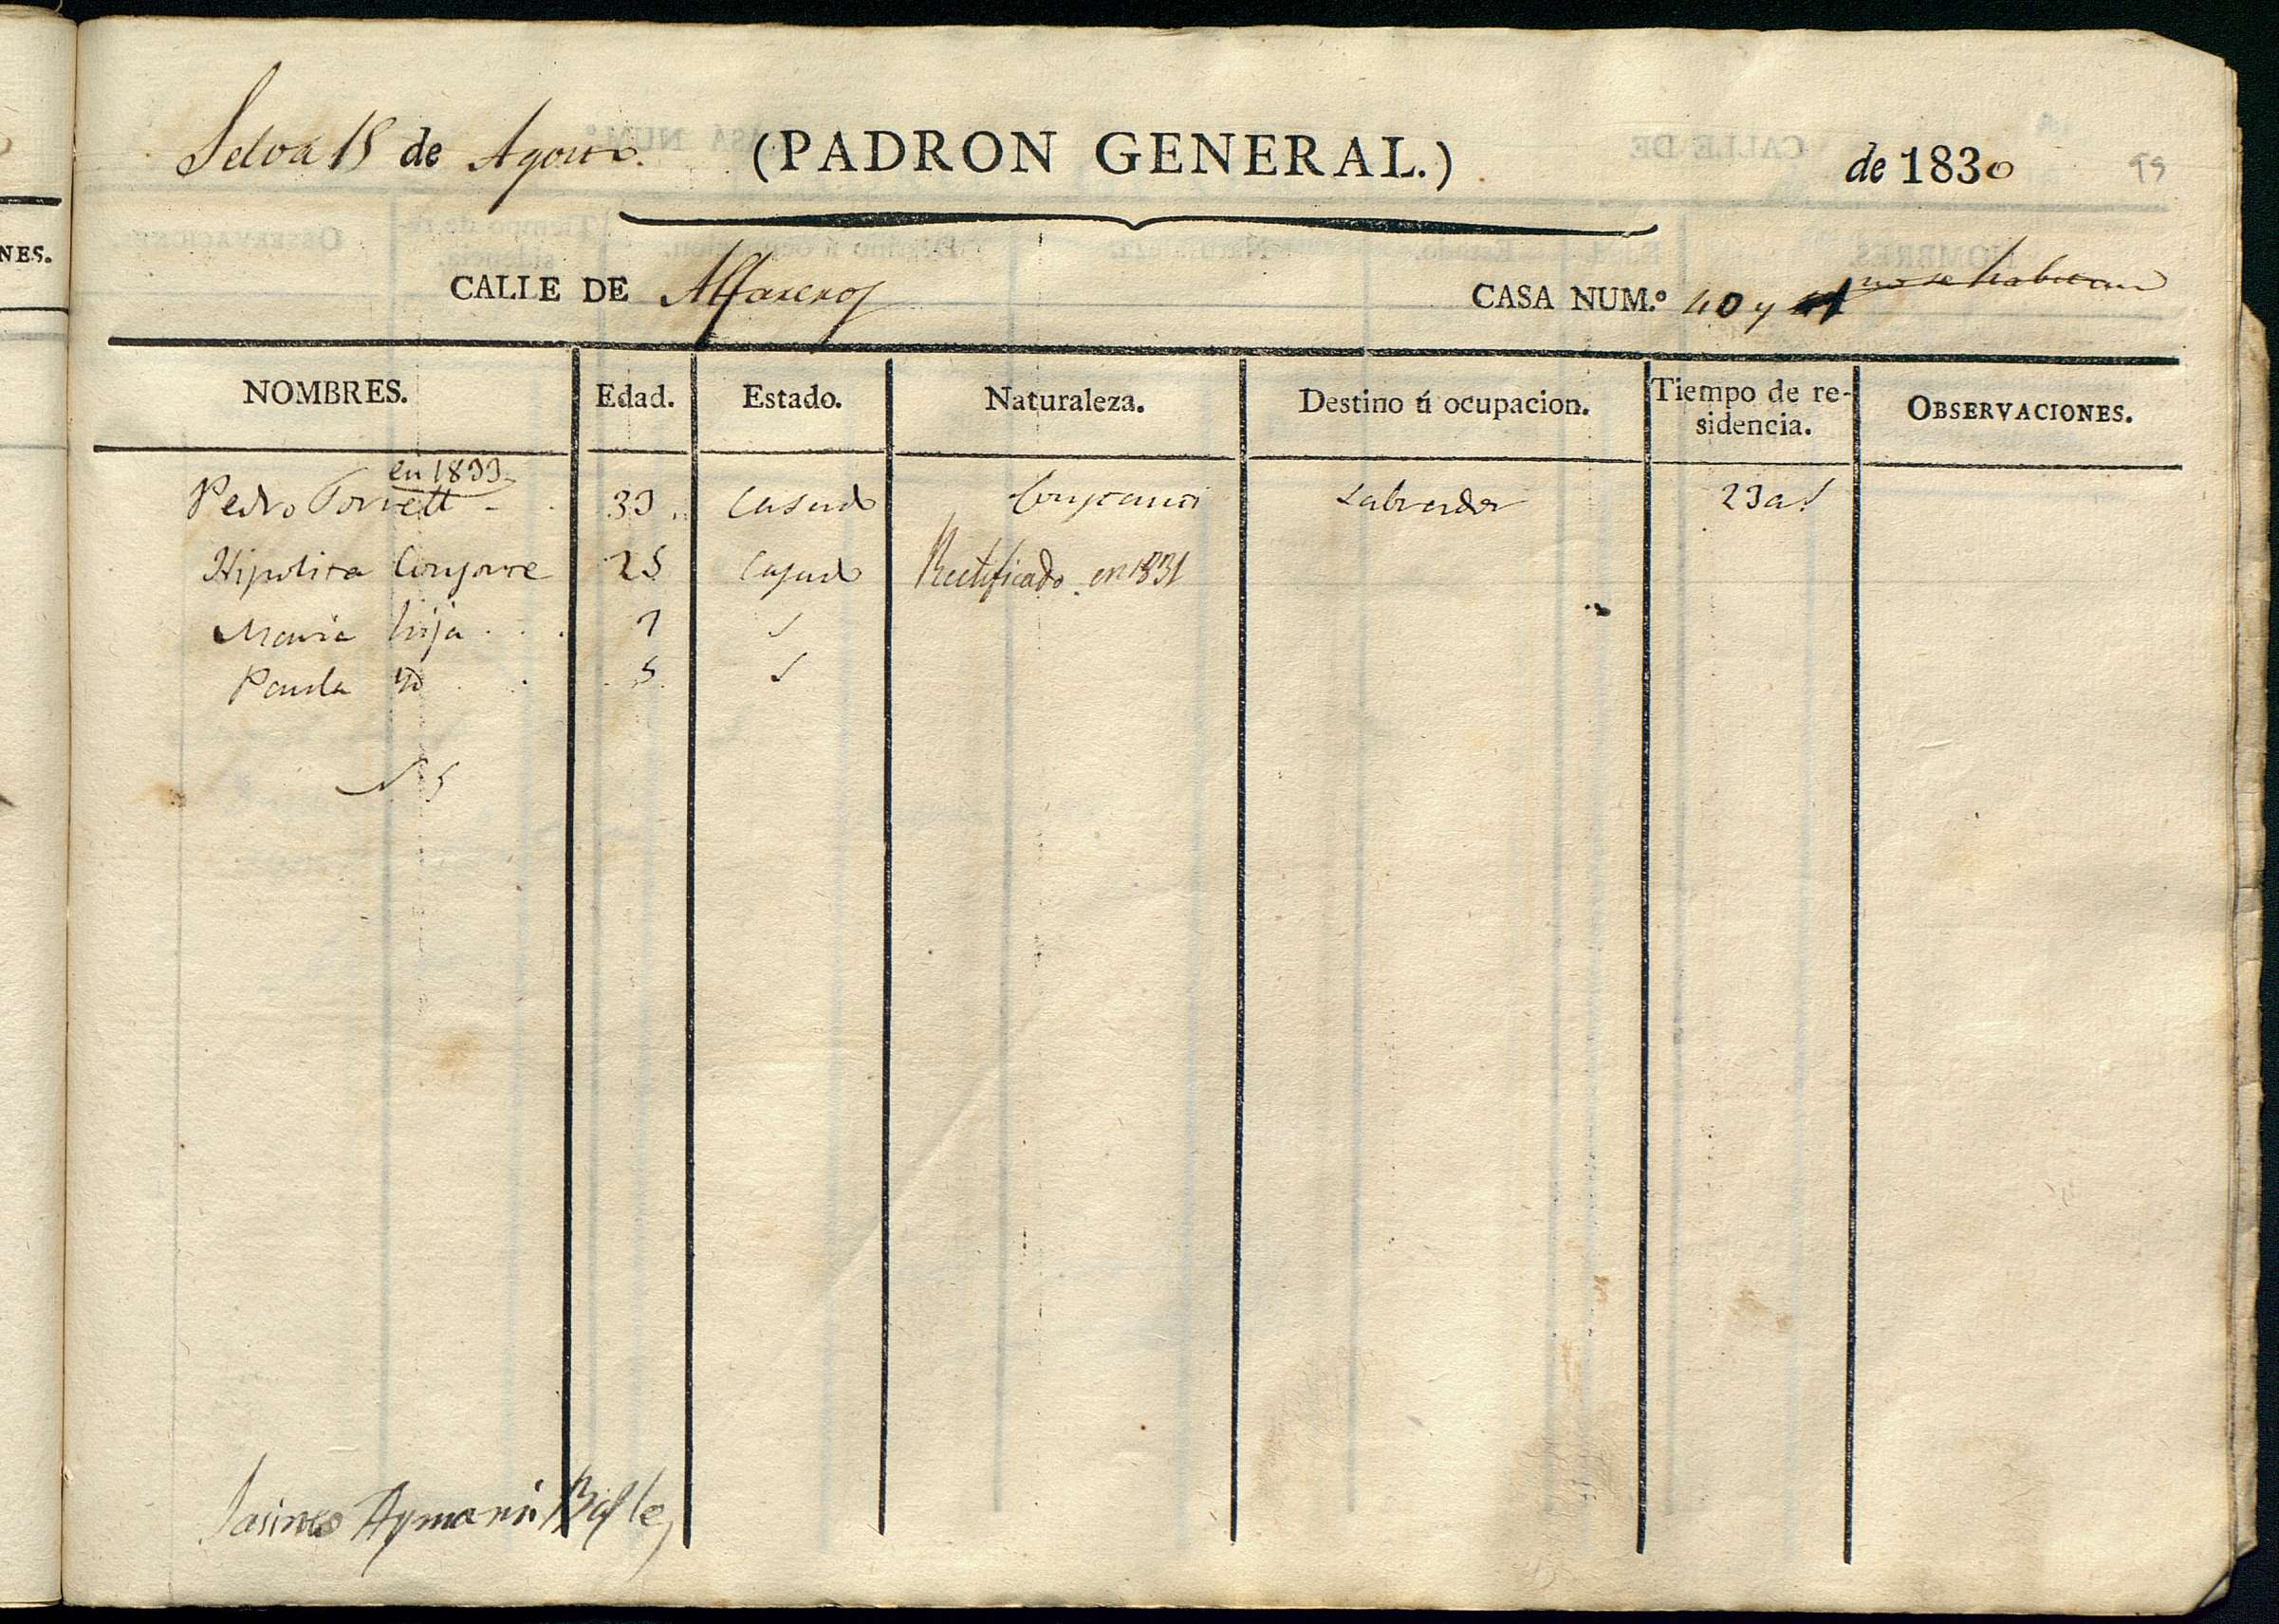 NES.
Selva 15 de Agosto. (PADRON GENERAL.) de 1830 95
CALLE DE Alfareros CASA NUM.º 40 y 41 no se habitan
NOMBRES. Edad. Estado. Naturaleza. Destino ú ocupacion. Tiempo de re-
sidencia. OBSERVACIONES.
en 1833
Pedro Torrell 33 Casado Constanti Labrador 23 a.s
Hipolita 25 Casad Rectificado en 1831
Maria hija 7 S
Paula Yd 5 S
Aymamí Bayle